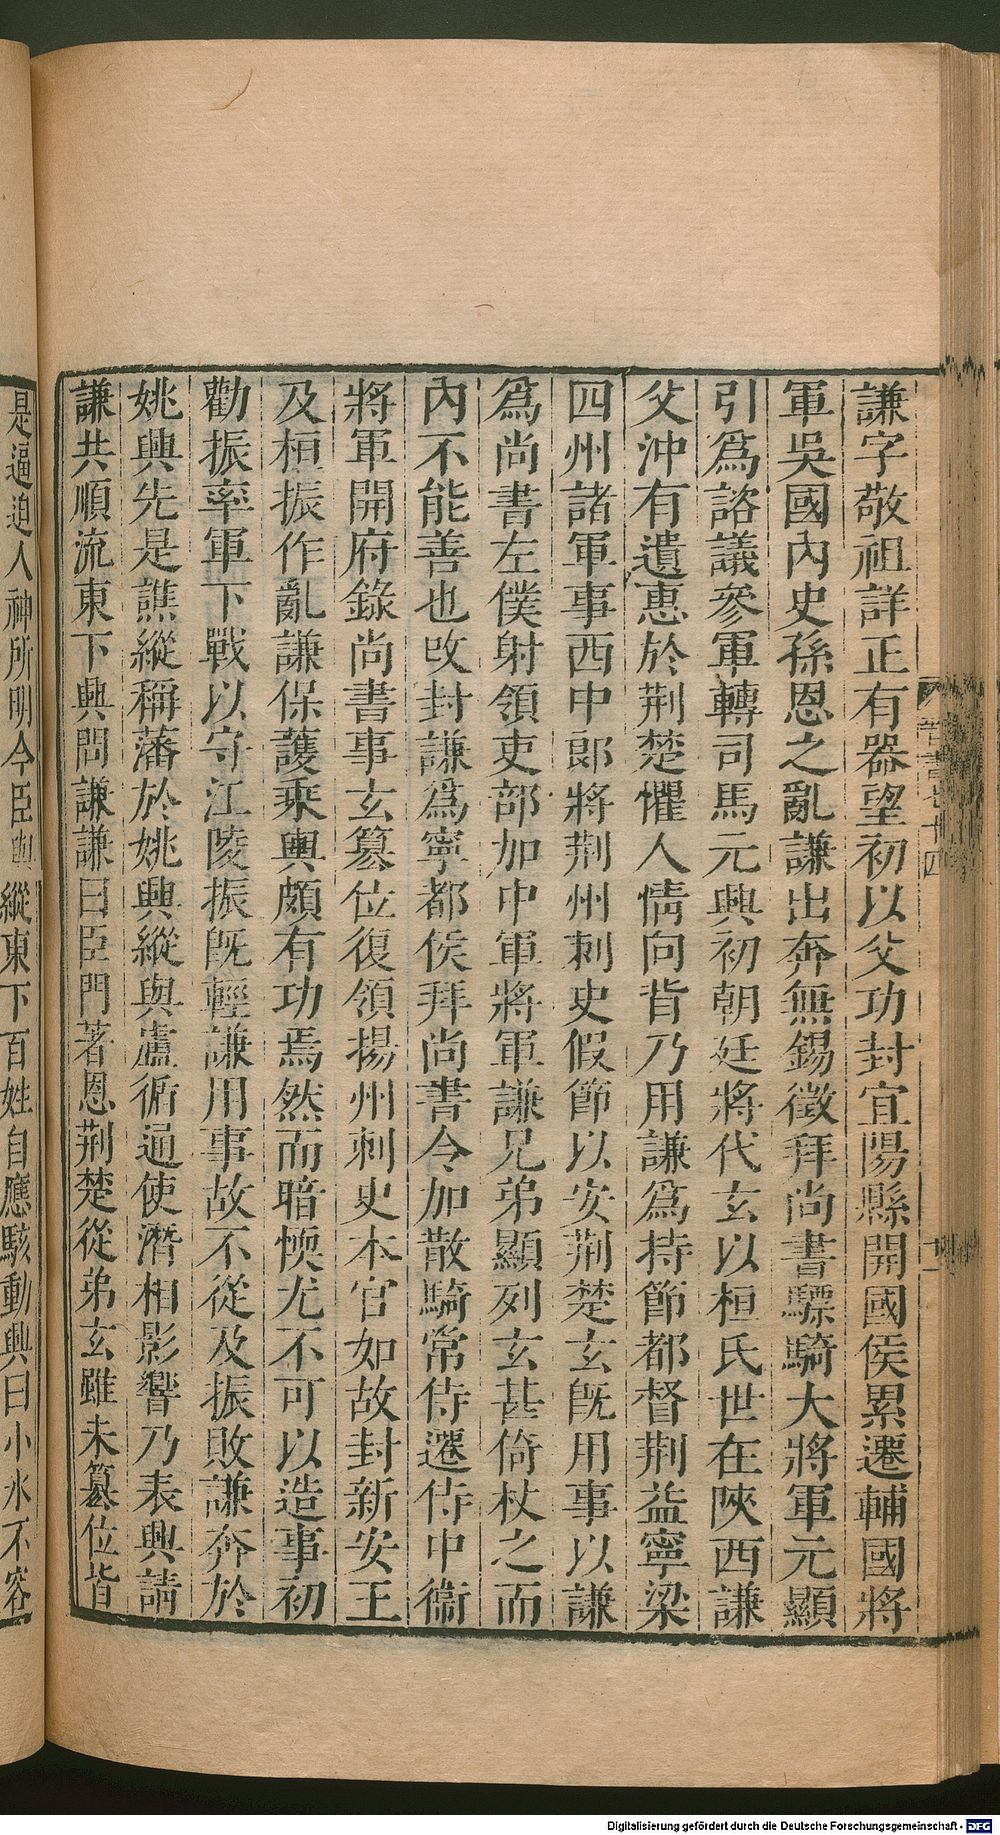 謙字敬祖詳正有器望初以父功封宜陽縣開國侯累遷輔國將
軍吳國內史孫恩之亂謙出奔無錫徵拜尚書驃騎大將軍元顯
引爲諮議參軍轉司馬元興初朝廷將代玄以桓氏世在陝西謙
父沖有遺惠於荆楚懼人情向背乃用謙爲持節都督荆益寧梁
四州諸軍事西中郎將荆州刺史假節以安荆楚玄既用事以謙
爲尚書左僕射領吏部加中軍將軍謙兄弟顯列玄甚倚杖之而
內不能善也改封謙爲寧都侯拜尚書令加散騎常侍遷侍中衞
將軍開府錄尚書事玄篡位復領揚州刺史本官如故封新安王
及桓振作亂謙保護乘輿頗有功焉然而暗懊尤不可以造事初
勸振率軍下戰以守江陵振既輕謙用事故不從及振敗謙奔於
姚興先是譙縱稱藩於姚興縱與盧循通使潛相影響乃表興請
謙共順流東下興問謙謙曰臣門著恩荆楚從弟玄雖未篡位皆
是逼迫人神所明今臣與縱東下百姓自應駭動興曰小水不容
晉書七十四
十一
Digitalisierung gefördert durch die Deutsche Forschungsgemeinschaft - DFG